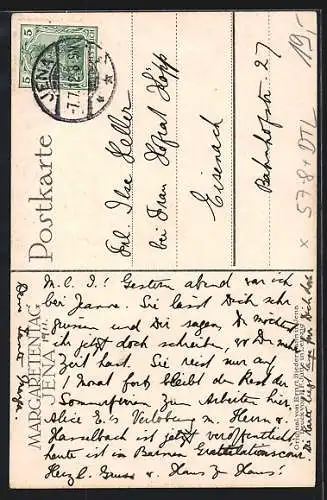 Postkarte
5 5
JENA
-7.7.12. 8-9N
19,-
Frl. Ilse Heller
bei Frau Hofrat Höpp
Eisenach
Bahnhofstr. 27
x 57-8 + DTL
MARGARETENTAG
JENA
M. l. I.! Gestern abend war ich
bei Jeanne. Sie lässt Dich sehr
grüssen und Dir sagen, Du möchtest
ihr jetzt doch schreiben, wo Du mehr
Zeit hast. Sie reist nur auf
1 Monat fort bleibt den Rest der
Sommerferien zum Arbeiten hier.
Alice E.'s Verlobung m. Herrn v.
Hasselbach ist jetzt veröffentlicht
heute ist in Gratulationscour.
Herzl. Gruss v. Haus zu Haus!
Dein